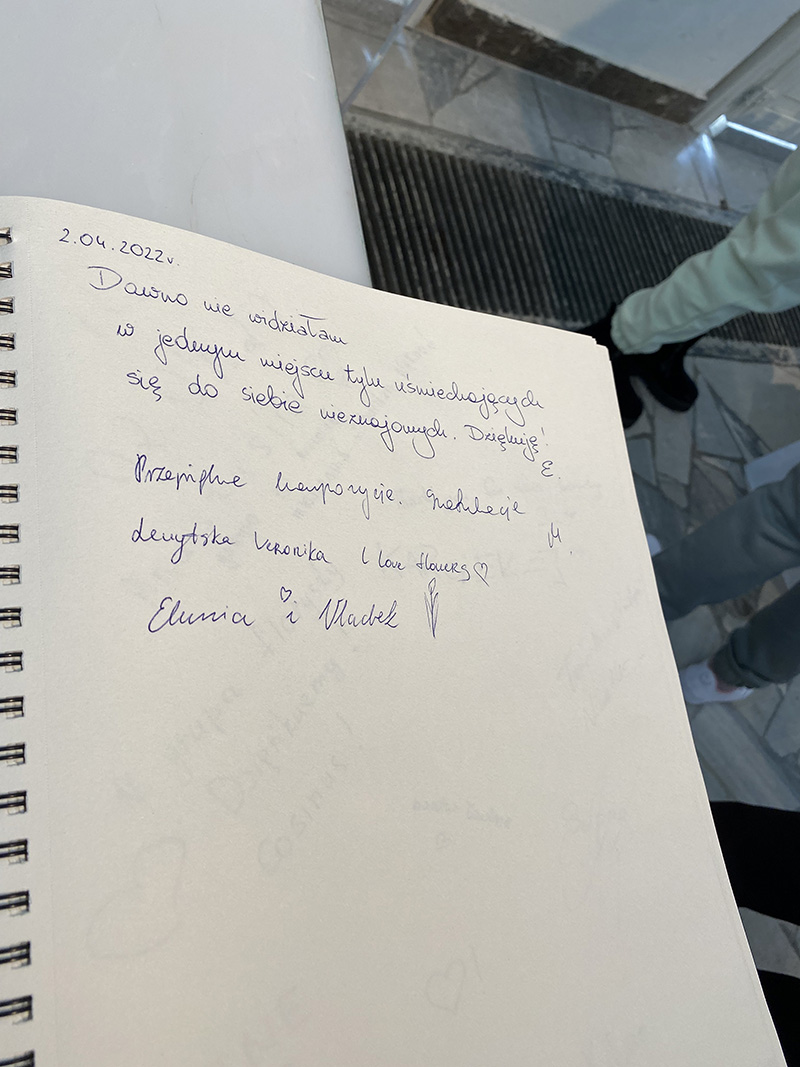 2.04.2022r.
Dawno nie widziałam
w jednym miejscu tylu uśmiechających
się do siebie nieznajomych. Dziękuję!
E.
Przepiękne kompozycje. Gratulacje
M.
Veronika I love flowers ♡
Elunia i Vladek
grupa
Dziękujemy